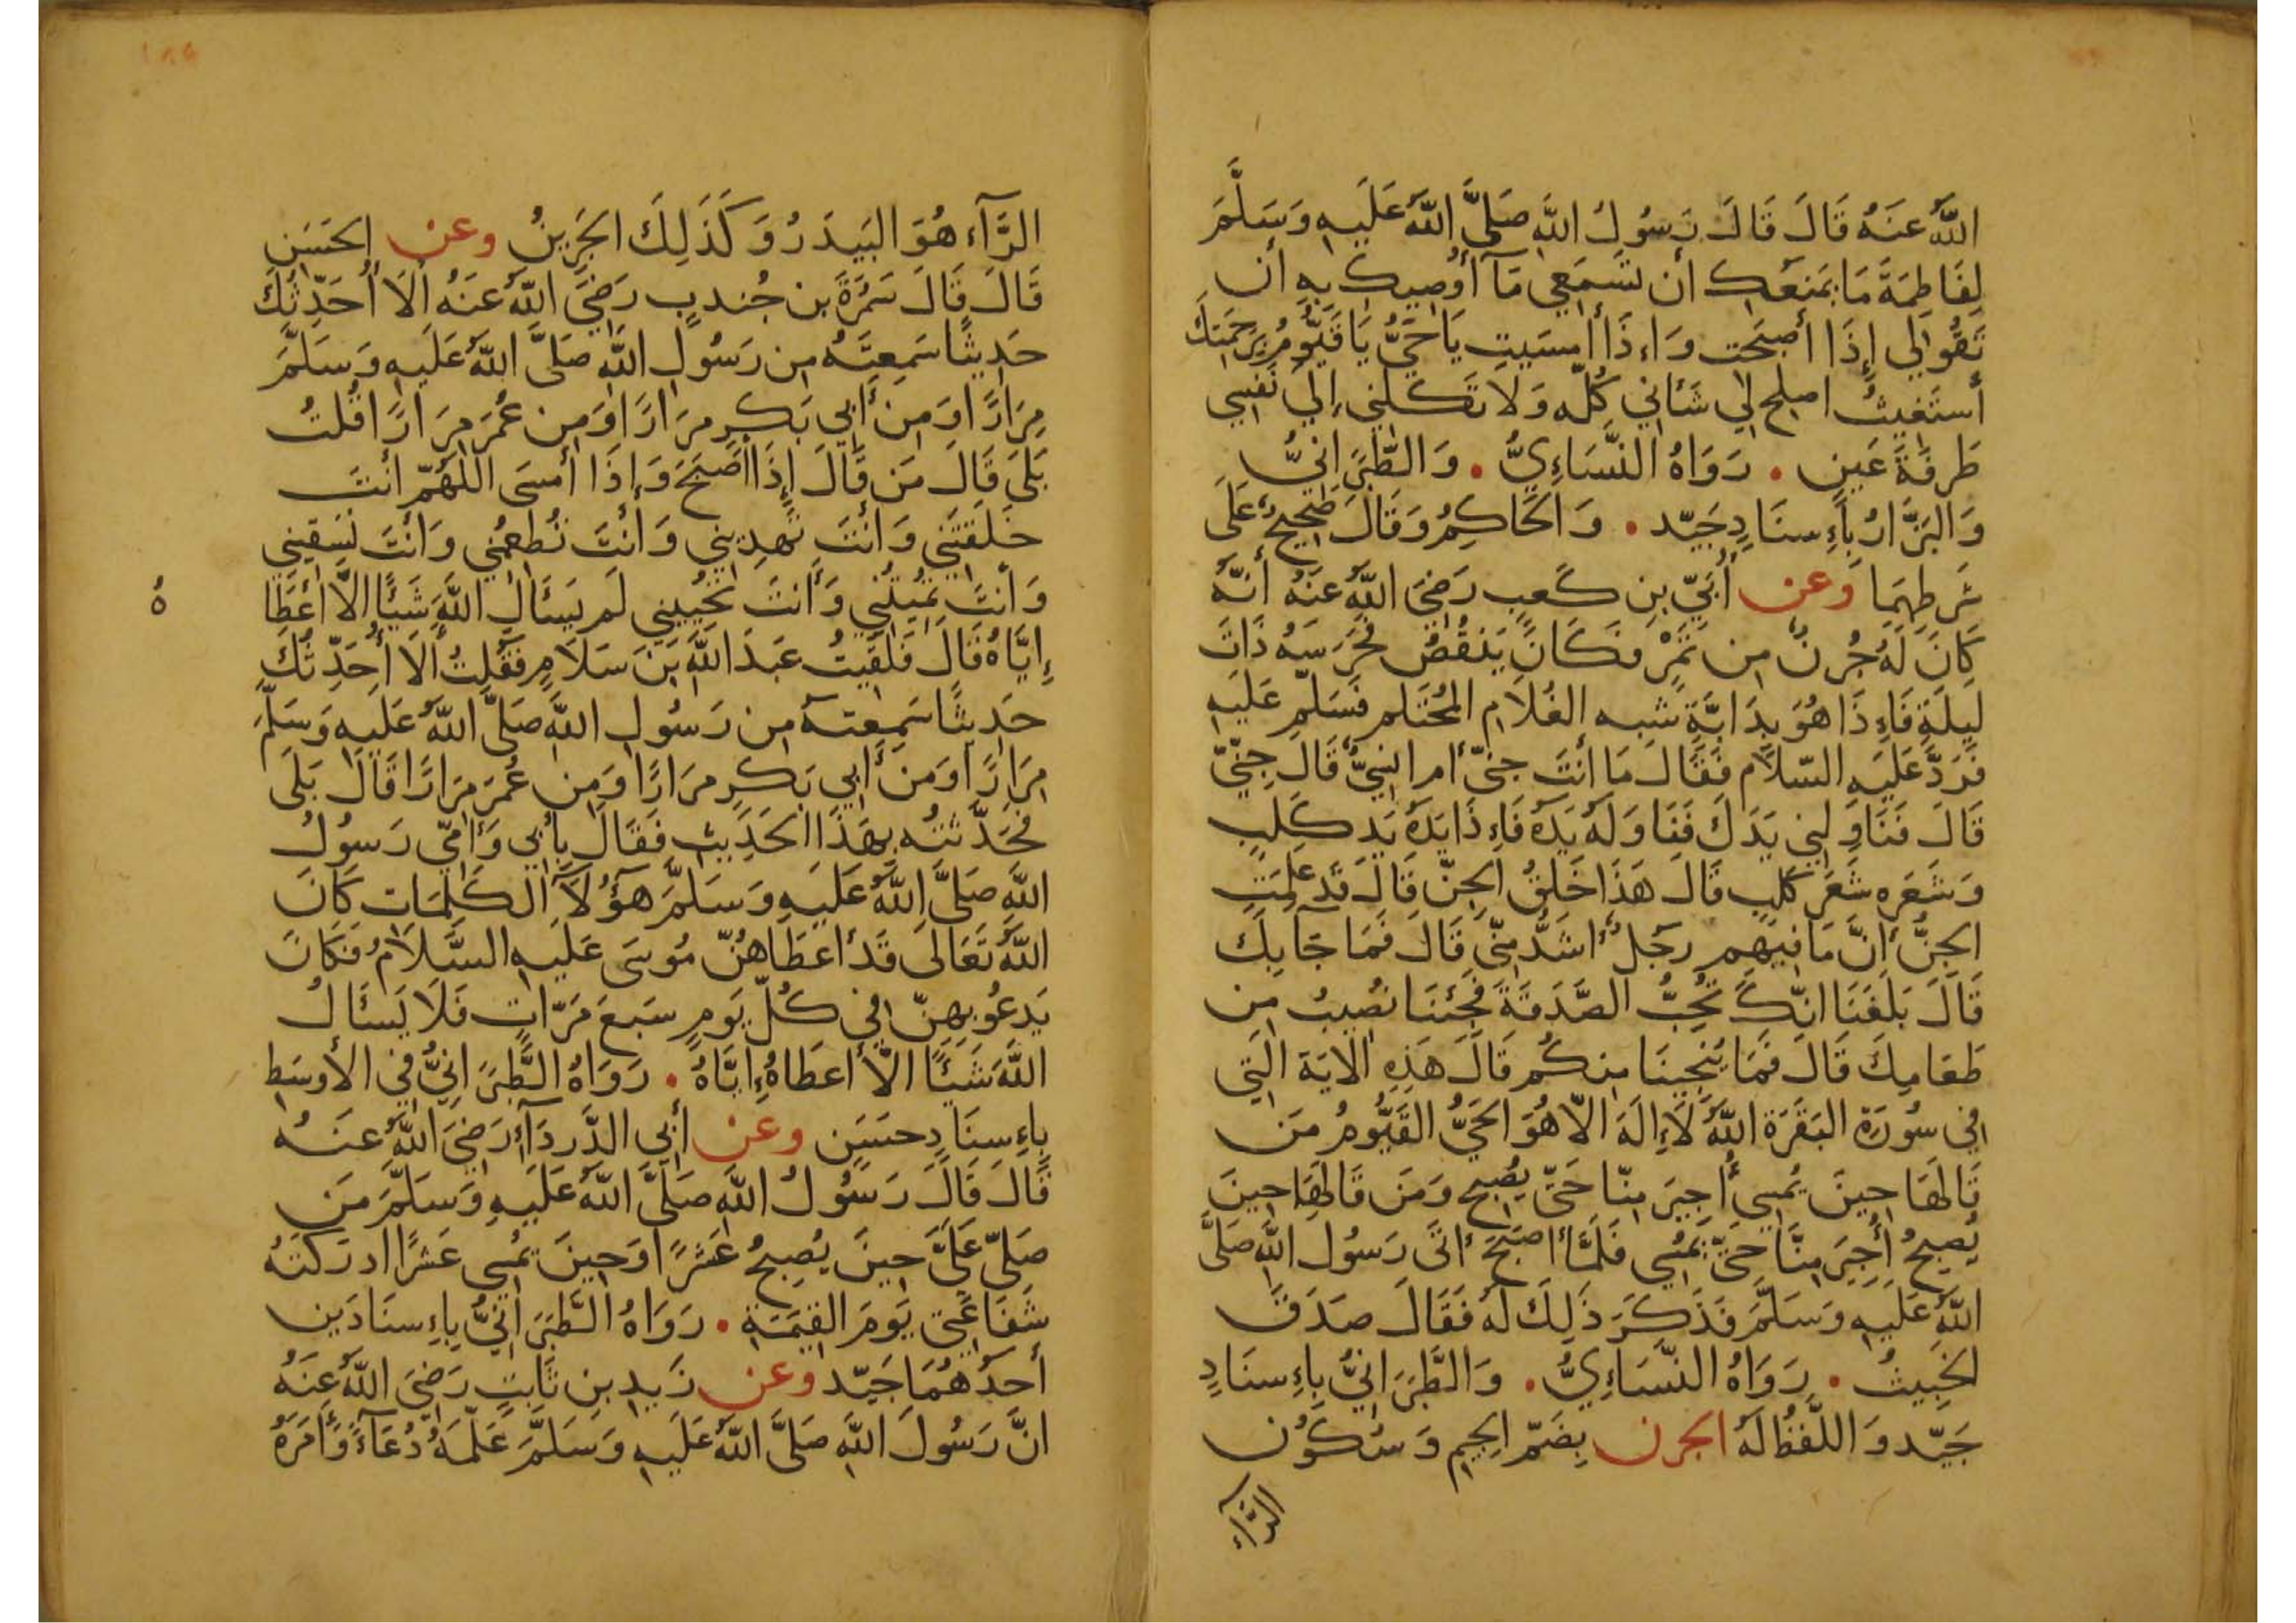 اللَّهُ عَنهُ قَالَ قَالَ رَسُولُ اللَّهِ صَلَّى اللَّهُ عَلَيهِ وَسَلَّمَ
لِفَاطِمَةَ مَا يَمنَعُكِ ان تَسمَعِي مَآ أُوصِيكِ بِهِ أَن
تَقُولِي إِذَا أَصبَحتِ وَإِذَا أَمسَيتِ يَا حَيُّ يَا قَيُّومُ بِرَحمَتِكَ
أَستَغِيثُ اصلِح لِي شَأنِي كُلَّه وَلَا تَكِلنِي إِلَى نَفسِي
طَرفَةَ عَينٍ . رَوَاهُ النَّسَاءِيُّ . وَالطَّبَرَانِيُّ
وَالبَزَّارُ بِإِسنَادٍ جَيِّد . وَالحَاكِمُ وَقَالَ صَحِيحٌ عَلَى
شَرطِهِمَا وَعن أُبَيِّ بنِ كَعبٍ رَضِيَ اللَّهُ عَنهُ أَنَّهُ
كَانَ لَهُ جُرنٌ مِن تَمرٍ فَكَانَ يَنقُصُ فَحَرَسَهُ ذَاتَ
لَيلَةٍ فَإِذَا هُوَ بِدَابَّةٍ شِبه الغُلَامِ المُحتَلِم فَسَلَّمَ عَلَيهِ
فَرَدَّ عَلَيهِ السَّلَام فَقَالَ مَا أَنتَ جِنّيٌّ أَم اِنسِيٌّ قَالَ جِنِّيٌّ
قَالَ فَنَاوِلنِي يَدَكَ فَنَاوَلَهُ يَدَهُ فَإِذَا يَدُهُ يَد كَلبٍ
وَشَعَره شَعَرَ كَلبٍ قَالَ هَذَا خَلقُ الجِنّ قَالَ قَد عَلِمَت
الجِنُّ أَنَّ مَا فِيهِم رَجُلٌ أَشَدُّ مِنِّي قَالَ فَمَا جَآ بِكَ
قَالَ بَلَغَنَا انَّكَ تُحِبُّ الصَّدَقَةَ فَجِئنَا نُصِيبُ مِن
طَعَامِكَ قَالَ فَمَا يُنجِينَا مِنكُم قَالَ هَذِهِ الايَة الَّتِي
فِي سُورَةِ البَقَرَة اللَّهُ لَا إِلَهَ الَّا هُوَ الحَيُّ القَيُّومُ مَن
قَالَهَا حِينَ يُمسِي أُجِيرَ مِنَّا حَتَّى يُصبِحَ وَمَن قَالَهَا حِينَ
يُصبِحُ أُجِيرَ مِنَّا حَتَّى يُمسِي فَلَمَّا أَصبَحَ أَتَى رَسُول اللَّهِ صَلَّى
اللَّهُ عَلَيهِ وَسَلَّمَ فَذَكَرَ ذَلِكَ لَهُ فَقَالَ صَدَقَ
الخَبِيثُ . رَوَاهُ النَّسَاءِيُّ . وَالطَّبَرَانِيُّ بِإِسنَادٍ
جَيِّد وَاللَّفظُ لَهُ الجرن بِضَمِّ الجِيمِ وَسُكُون
الرَّآءِ
الرَّآءِ هُوَ البَيدَرُ وَكَذَلِكَ الجَرِينُ وعن الحَسَن
قَالَ قَالَ سَمُرَةُ بن جُندبٍ رَضِيَ اللَّهُ عَنهُ أَلَا أُحَدِّثُكَ
حَدِيثًا سَمِعتُهُ مِن رَسُولِ اللَّهِ صَلَّى اللَّهُ عَلَيهِ وَسَلَّمَ
مِرَارًا وَمِن أَبِي بَكرٍ مِرَارًا وَمِن عُمَرَ مِرَارًا قُلتُ
بَلَى قَالَ مَن قَالَ إِذَا أَصبَحَ وَإِذَا أَمسَى اللَّهُمّ أَنتَ
خَلَقتَنِي وَأَنتَ تَهدِينِي وَأَنتَ تُطعِمُنِي وَأَنتَ تَسقِينِي
وَأَنتَ تُمِيتُنِي وَأَنتَ تُحيِينِي لَم يَسئَالِ اللَّهَ شَيئًا الَّا أَعطَا
هُ
إِيَّاهُ قَالَ فَلَقِيتُ عَبدَ اللَّهِ بنَ سَلَامٍ فَقُلتُ أَلَا أُحَدِّثُكَ
حَدِيثًا سَمِعته مِن رَسُولِ اللَّهِ صَلَّى اللَّهُ عَلَيهِ وَسَلَّمَ
مِرَارًا وَمِن أَبِي بَكرٍ مِرَارًا وَمِن عُمَرَ مِرَارًا قَالَ بَلَى
فَحَدَّثتُه بِهَذَا الحَدِيثِ فَقَالَ بِأَبِي وَأُمِّي رَسُولُ
اللَّهِ صَلَّى اللَّهُ عَلَيهِ وَسَلَّمَ هَؤُلَآ الكَلِمَات كَانَ
اللَّهُ تَعَالَى قَد أَعطَاهُنّ مُوسَى عَلَيهِ السَّلَامُ فَكَانَ
يَدعُو بِهِنّ فِي كُلِّ يَومٍ سَبعَ مَرَّاتٍ فَلَا يَسئَالُ
اللَّهَ شَيئًا الَّا أَعطَاهُ إِيَّاهُ . رَوَاهُ الطَّبَرَانِيُّ فِي الأَوسَطِ
بِإِسنَادٍ حسَنٍ وعن أَبِي الدَّردَآءِ رَضِيَ اللَّهُ عَنهُ
قَالَ قَالَ رَسُولُ اللَّهِ صَلَّى اللَّهُ عَلَيهِ وَسَلَّمَ مَن
صَلَّى عَلَيَّ حِينَ يُصبِحُ عَشرًا وَحِينَ يُمسِي عَشرًا ادرَكَتهُ
شَفَاعَتِي يَومَ القِيمَةِ . رَوَاهُ الطَّبَرَانِيُّ بِإِسنَادَين
أَحَدُهُمَا جَيِّد وعن زَيدِ بنِ ثَابِتٍ رَضِيَ اللَّهُ عَنهُ
انَّ رَسُولَ اللَّهِ صَلَّى اللَّهُ عَلَيهِ وَسَلَّمَ عَلَّمَهُ دُعَآءً وَأَمَرَهُ